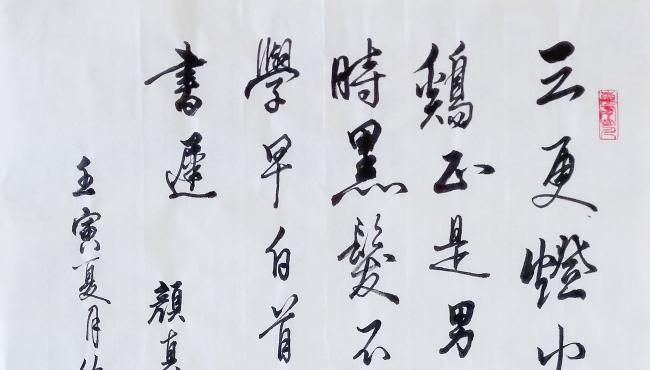 三更燈火
鷄正是男
時黑髮不
學早白首
書遲 顏真
壬寅夏月